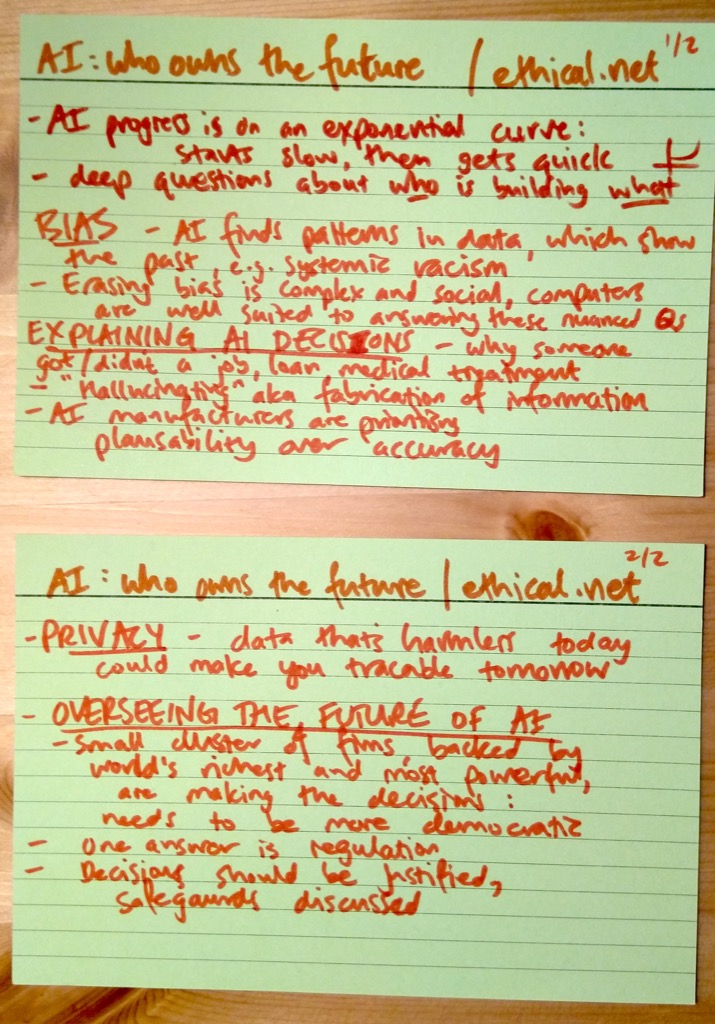 1/2
AI: who owns the future / ethical.net
- AI progress is on an exponential curve:
starts slow, then gets quick
- deep questions about who is building what
BIAS - AI finds patterns in data, which show
the past, e.g. systemic racism
- Erasing bias is complex and social, computers
are well suited to answering these nuanced Qs
EXPLAINING AI DECISIONS - why someone
got/didnt a job, loan, medical treatment
- "Hallucinating" aka fabrication of information
- AI manufacturers are prioritising
plausability over accuracy
2/2
AI: who owns the future / ethical.net
- PRIVACY - data that's harmless today
could make you tracable tomorrow
- OVERSEEING THE FUTURE OF AI
- Small cluster of firms, backed by
world's richest and most powerful,
are making the decisions:
needs to be more democratic
- One answer is regulation
- Decisions should be justified,
safegaurds discussed